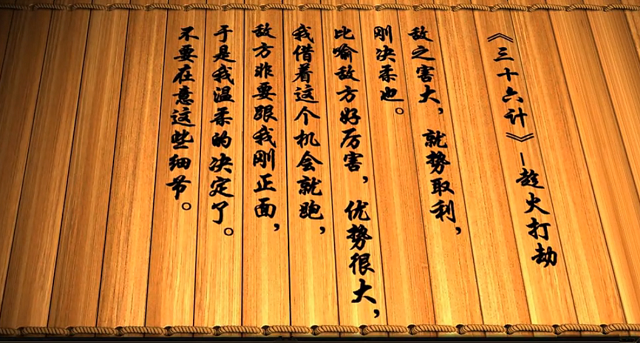 《三十六计》—趁火打劫
敌之害大，就势取利，
刚决柔也。
比喻敌方好厉害，优势很大，
我借着这个机会就跑，
敌方非要跟我刚正面，
于是我温柔的决定了。
不要在意这些细节。